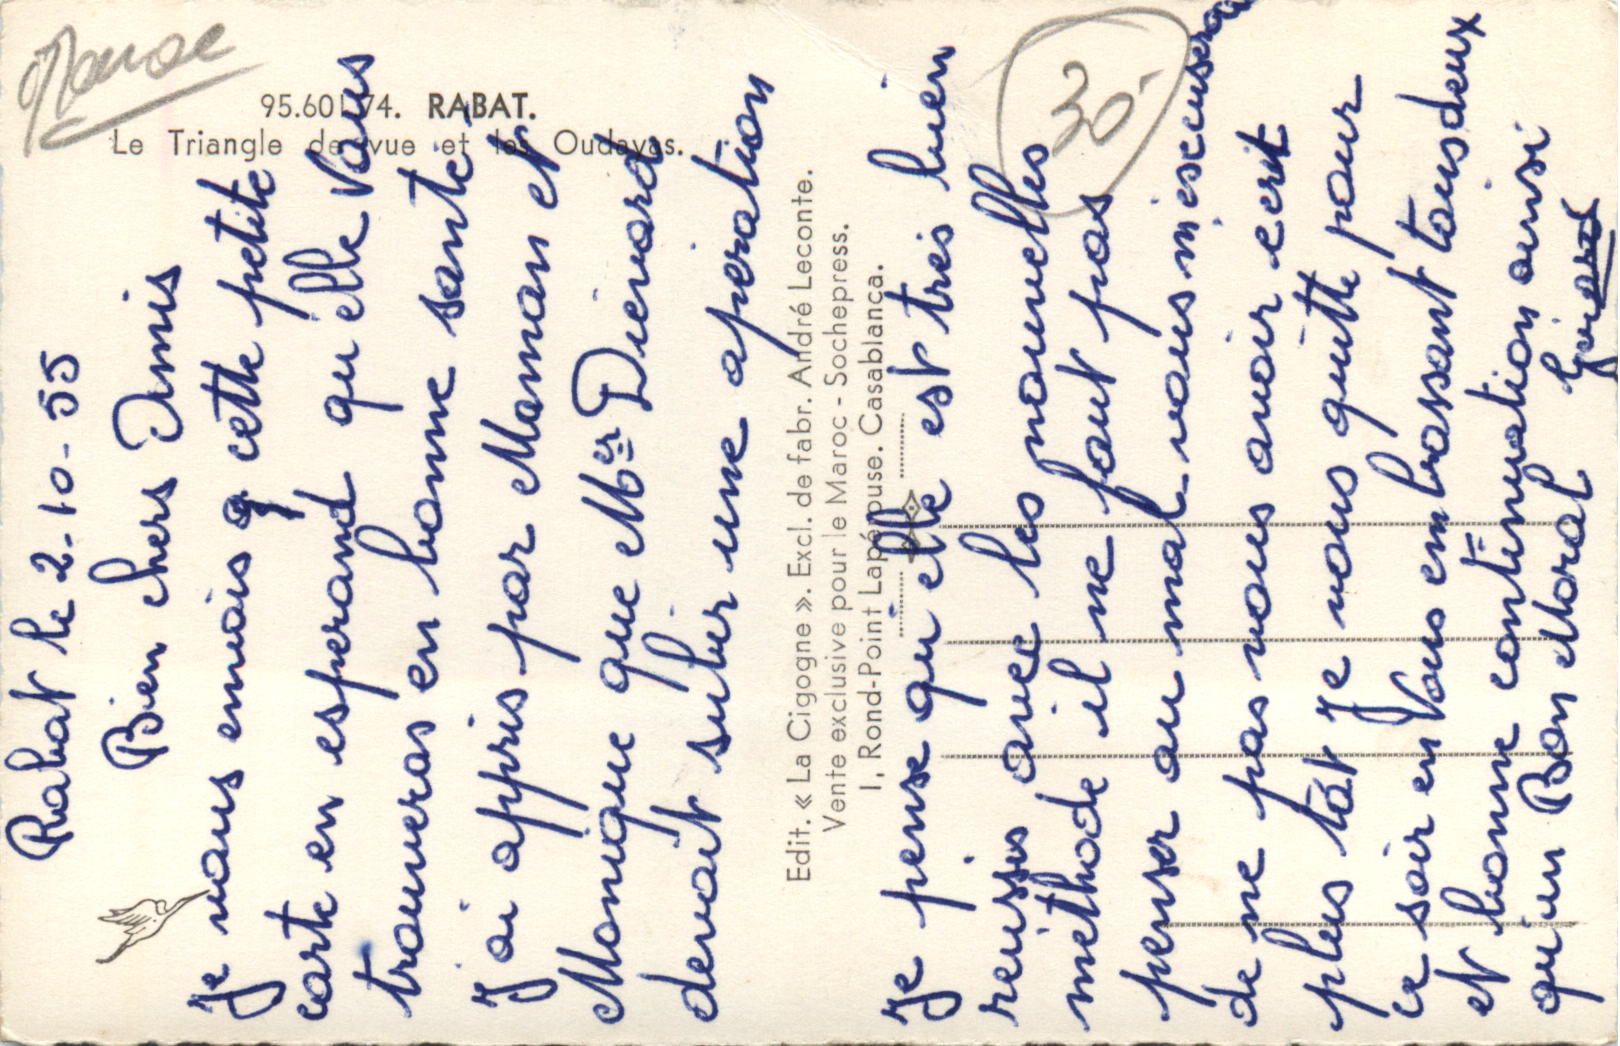 Maroc
30-
95.601 74. RABAT.
Le Triangle de vue et les Oudayas.
Edit. « La Cigogne ». Excl. de fabr. André Leconte.
Vente exclusive pour le Maroc - Sochepress.
1, Rond-Point Lapérouse. Casablanca.
Rabat le 2-10-55
Bien chers Amis
Je vous envois cette petite
carte en esperand qu'elle Vous
trouveras en bonne santé
J'ai appris par Maman et
Monique que Mer Dienard
devait subir une operation
Je pense qu'elle est tres bien
reussis avec les nouvelles
methode il ne faut pas
penser au mal. vous m'escuserai
de ne pas vous avoir ecrit
plus tôt Je vous quitte pour
ce soir en Vous embrassant tous deux
et bonne continuation ainsi
qu'un Bon Moral